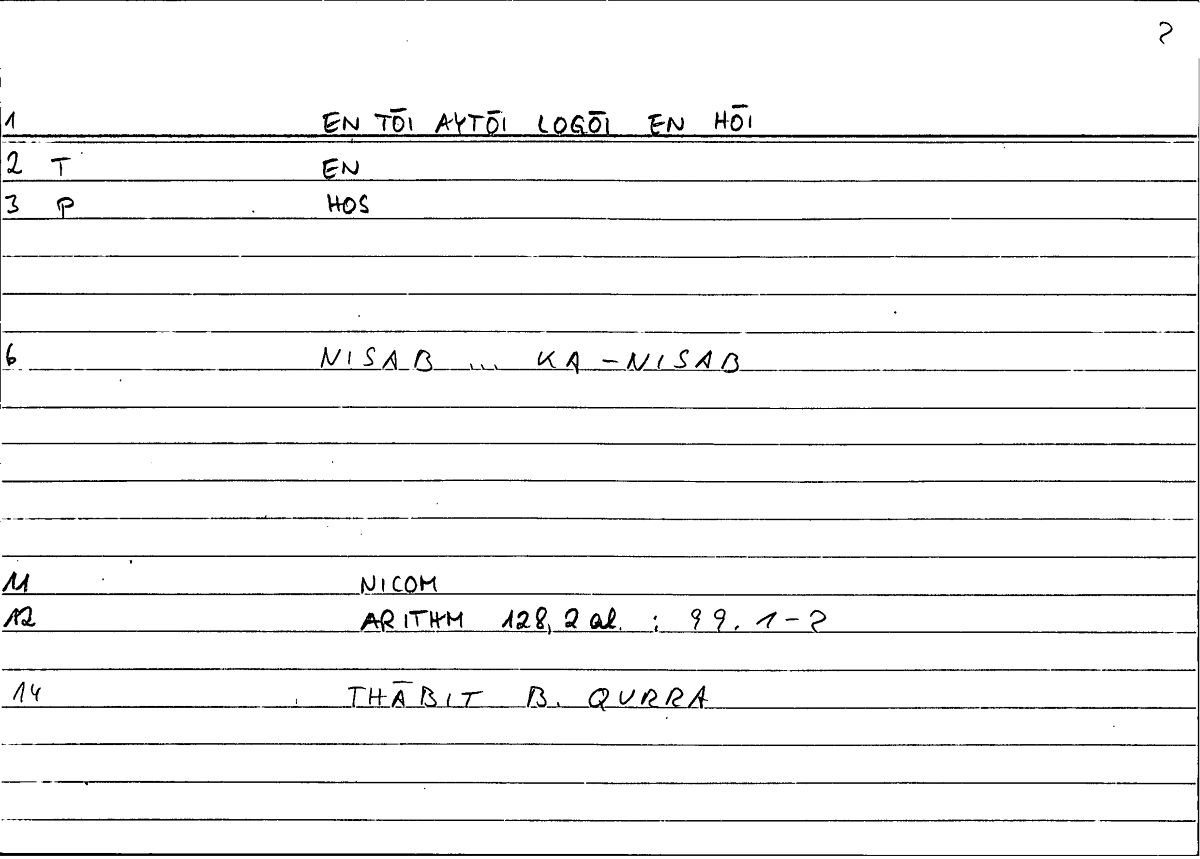 2
1 EN TŌI AYTŌI LOGŌI EN HŌI
2 T EN
3 P HOS
6 NISAB ... KA-NISAB
11 NICOM
12 ARITHM 128,2 al. : 99.1-2
14 THĀBIT B. QURRA